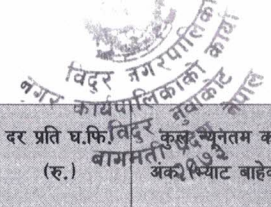 विदुर नगरपालिका
नगर कार्यपालिकाको कार्या
विदुर नुवाकोट
बागमती प्रदेश नेपाल
२०७३
दर प्रति घ.फि.
(रु.)
कुल न्यूनतम क
अंक भ्याट बाहेक